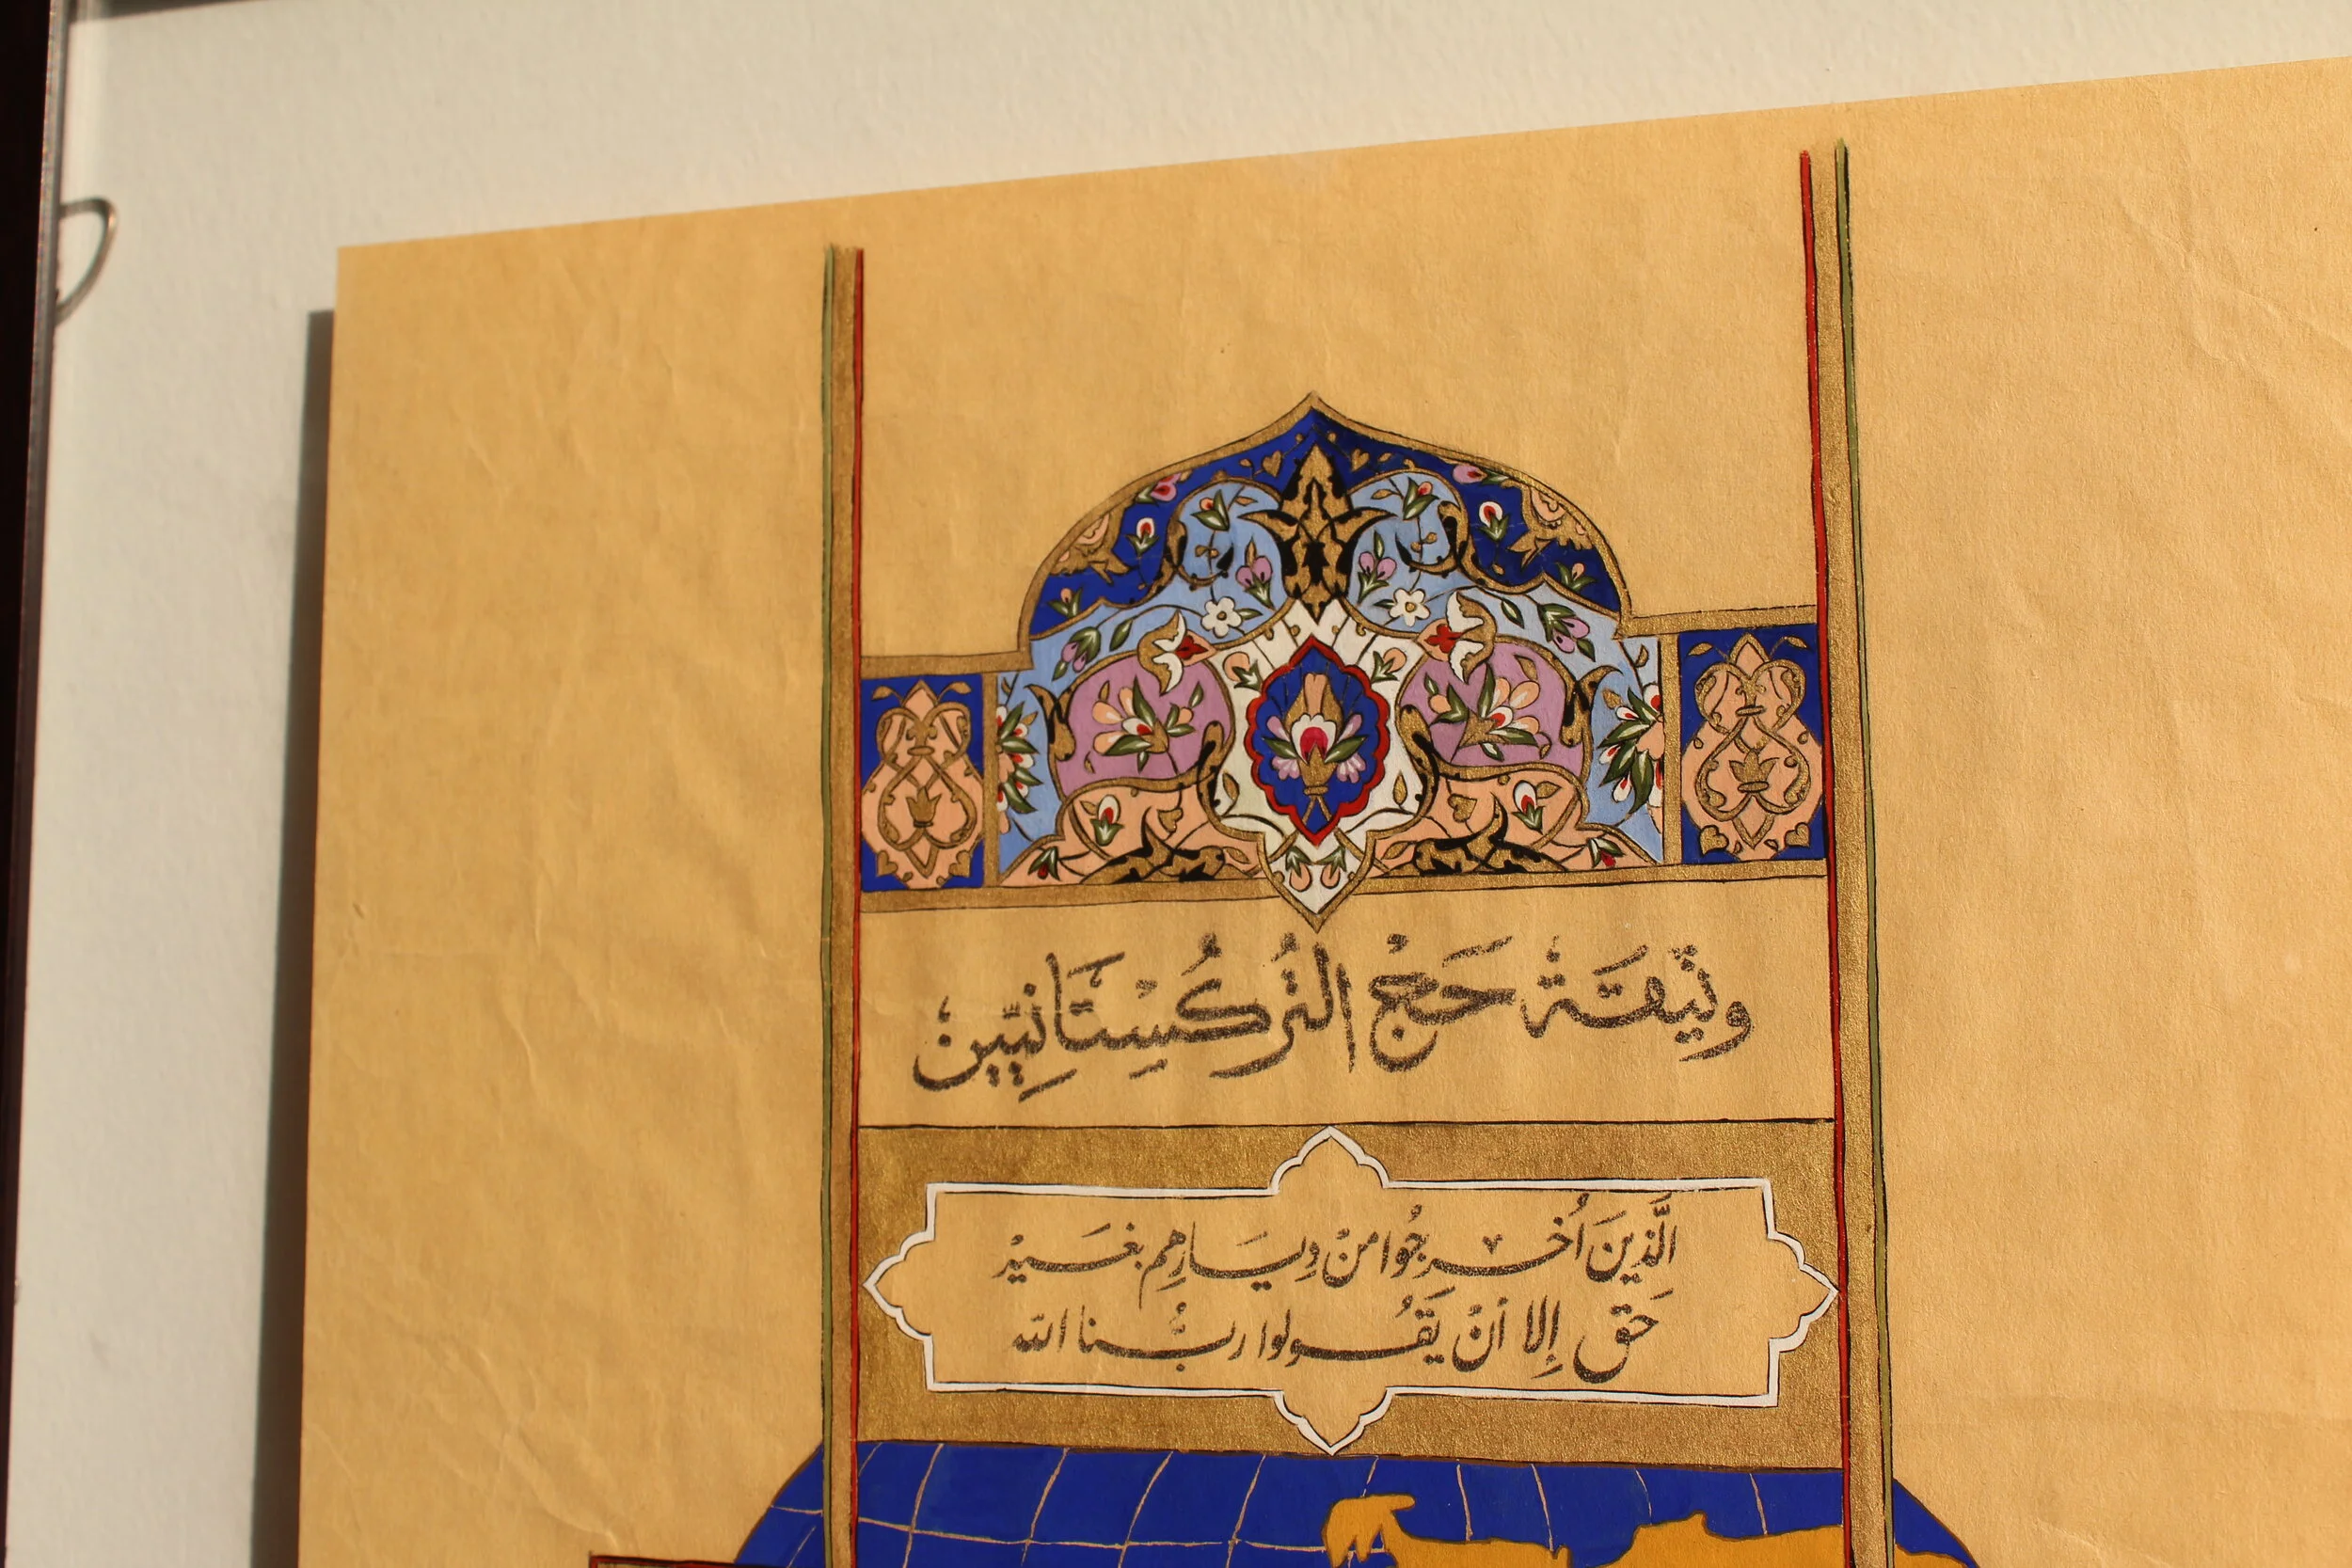 وثِيقَة حَجْ التُركُسِتَانِيّين
الَّذِينَ اُخرجُوا منْ دِيَارِهِم بغَيرْ
حَق إِلا أنْ يَقُولوا ربُّنا الله